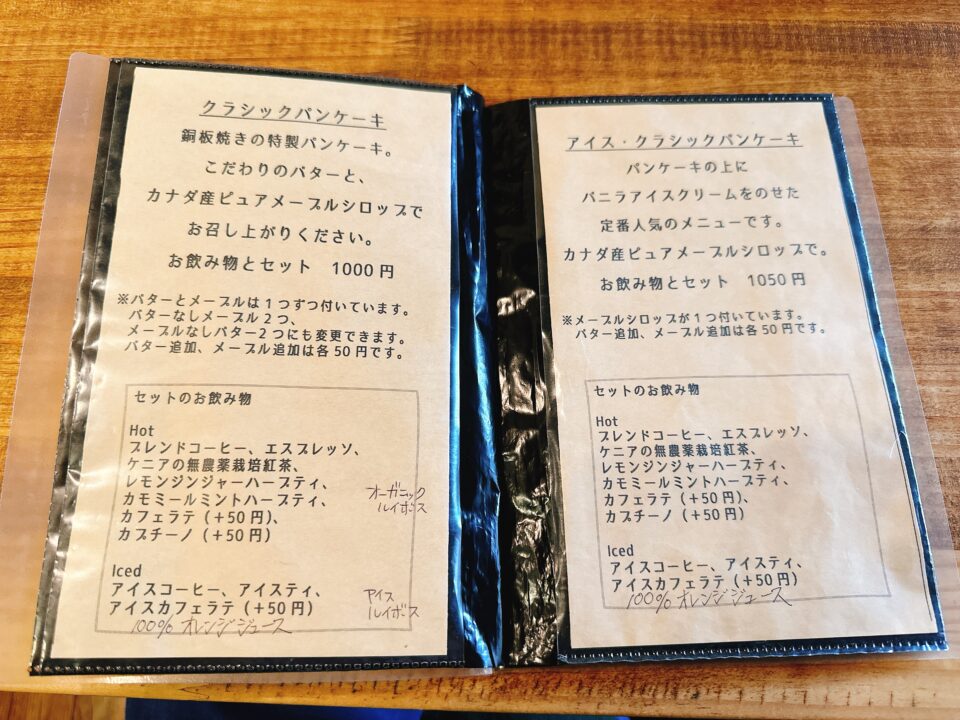 クラシックパンケーキ
銅板焼きの特製パンケーキ。
こだわりのバターと、
カナダ産ピュアメープルシロップで
お召し上がりください。
お飲み物とセット　1000円
※バターとメープルは1つずつ付いています。
バターなしメープル2つ、
メープルなしバター2つにも変更できます。
バター追加、メープル追加は各50円です。
セットのお飲み物
Hot
ブレンドコーヒー、エスプレッソ、
ケニアの無農薬栽培紅茶、
レモンジンジャーハーブティ、
カモミールミントハーブティ、
カフェラテ（＋50円）、
カプチーノ（＋50円）
オーガニック
ルイボス
Iced
アイスコーヒー、アイスティ、
アイスカフェラテ（＋50円）
100% オレンジジュース
アイス
ルイボス
アイス・クラシックパンケーキ
パンケーキの上に
バニラアイスクリームをのせた
定番人気のメニューです。
カナダ産ピュアメープルシロップで。
お飲み物とセット　1050円
※メープルシロップが1つ付いています。
バター追加、メープル追加は各50円です。
セットのお飲み物
Hot
ブレンドコーヒー、エスプレッソ、
ケニアの無農薬栽培紅茶、
レモンジンジャーハーブティ、
カモミールミントハーブティ、
カフェラテ（＋50円）、
カプチーノ（＋50円）
Iced
アイスコーヒー、アイスティ、
アイスカフェラテ（＋50円）
100% オレンジジュース